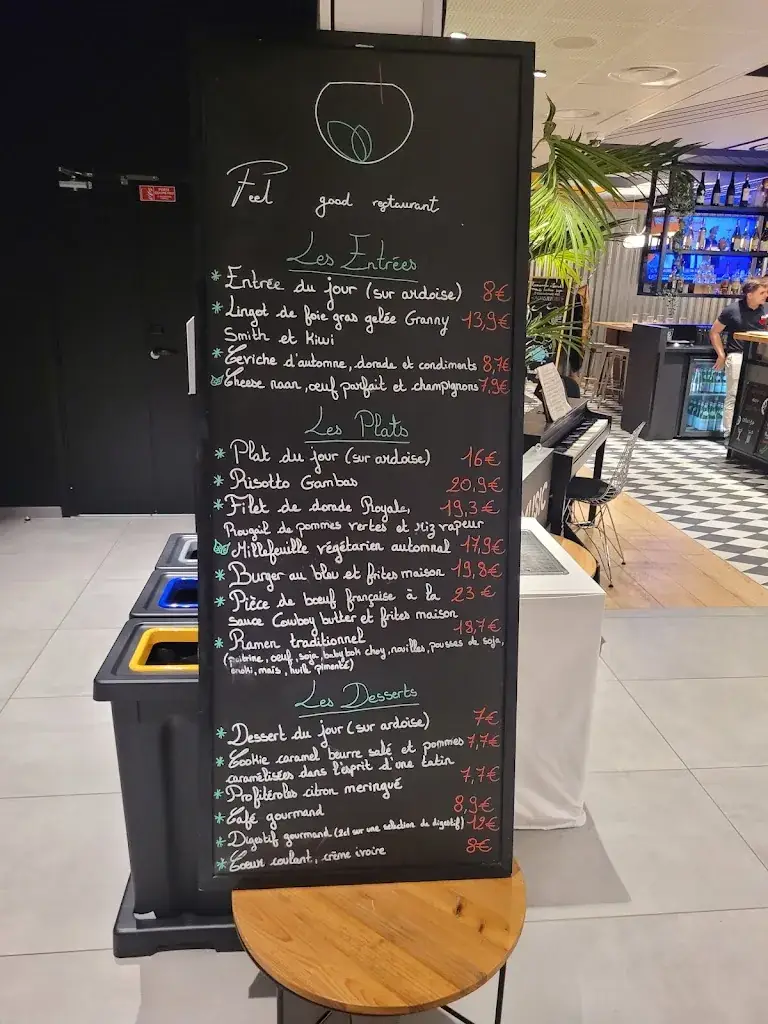 Feel good restaurant
Les Entrées
* Entrée du jour (sur ardoise) 8€
* Lingot de foie gras gelée Granny 13,9€
Smith et Kiwi
* Ceviche d'automne, dorade et condiments 8,7€
Cheese naan, oeuf parfait et champignons 7,9€
Les Plats
* Plat du jour (sur ardoise) 16€
* Risotto Gambas 20,9€
* Filet de dorade Royale, 19,3€
Rougail de pommes vertes et riz vapeur
Millefeuille végétarien automnal 17,9€
* Burger au bleu et frites maison 19,8€
* Pièce de bœuf française à la 23€
sauce Cowboy butter et frites maison
* Ramen traditionnel 18,7€
(poitrine, oeuf, soja, baby bok choy, nouilles, pousses de soja,
enoki, maïs, huile pimenté)
Les Desserts
* Dessert du jour (sur ardoise) 7€
* Cookie caramel beurre salé et pommes 7,7€
caramélisées dans l'esprit d'une tatin
* Profiteroles citron meringué 7,7€
* Café gourmand 8,9€
* Digestif gourmand (2cl sur une sélection de digestif) 12€
* Coeur coulant, crème ivoire 8€